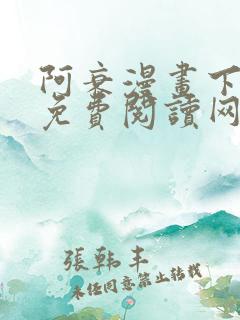 阿衰漫畫下
免費閱讀网
張韩丰
未经同意禁止转载